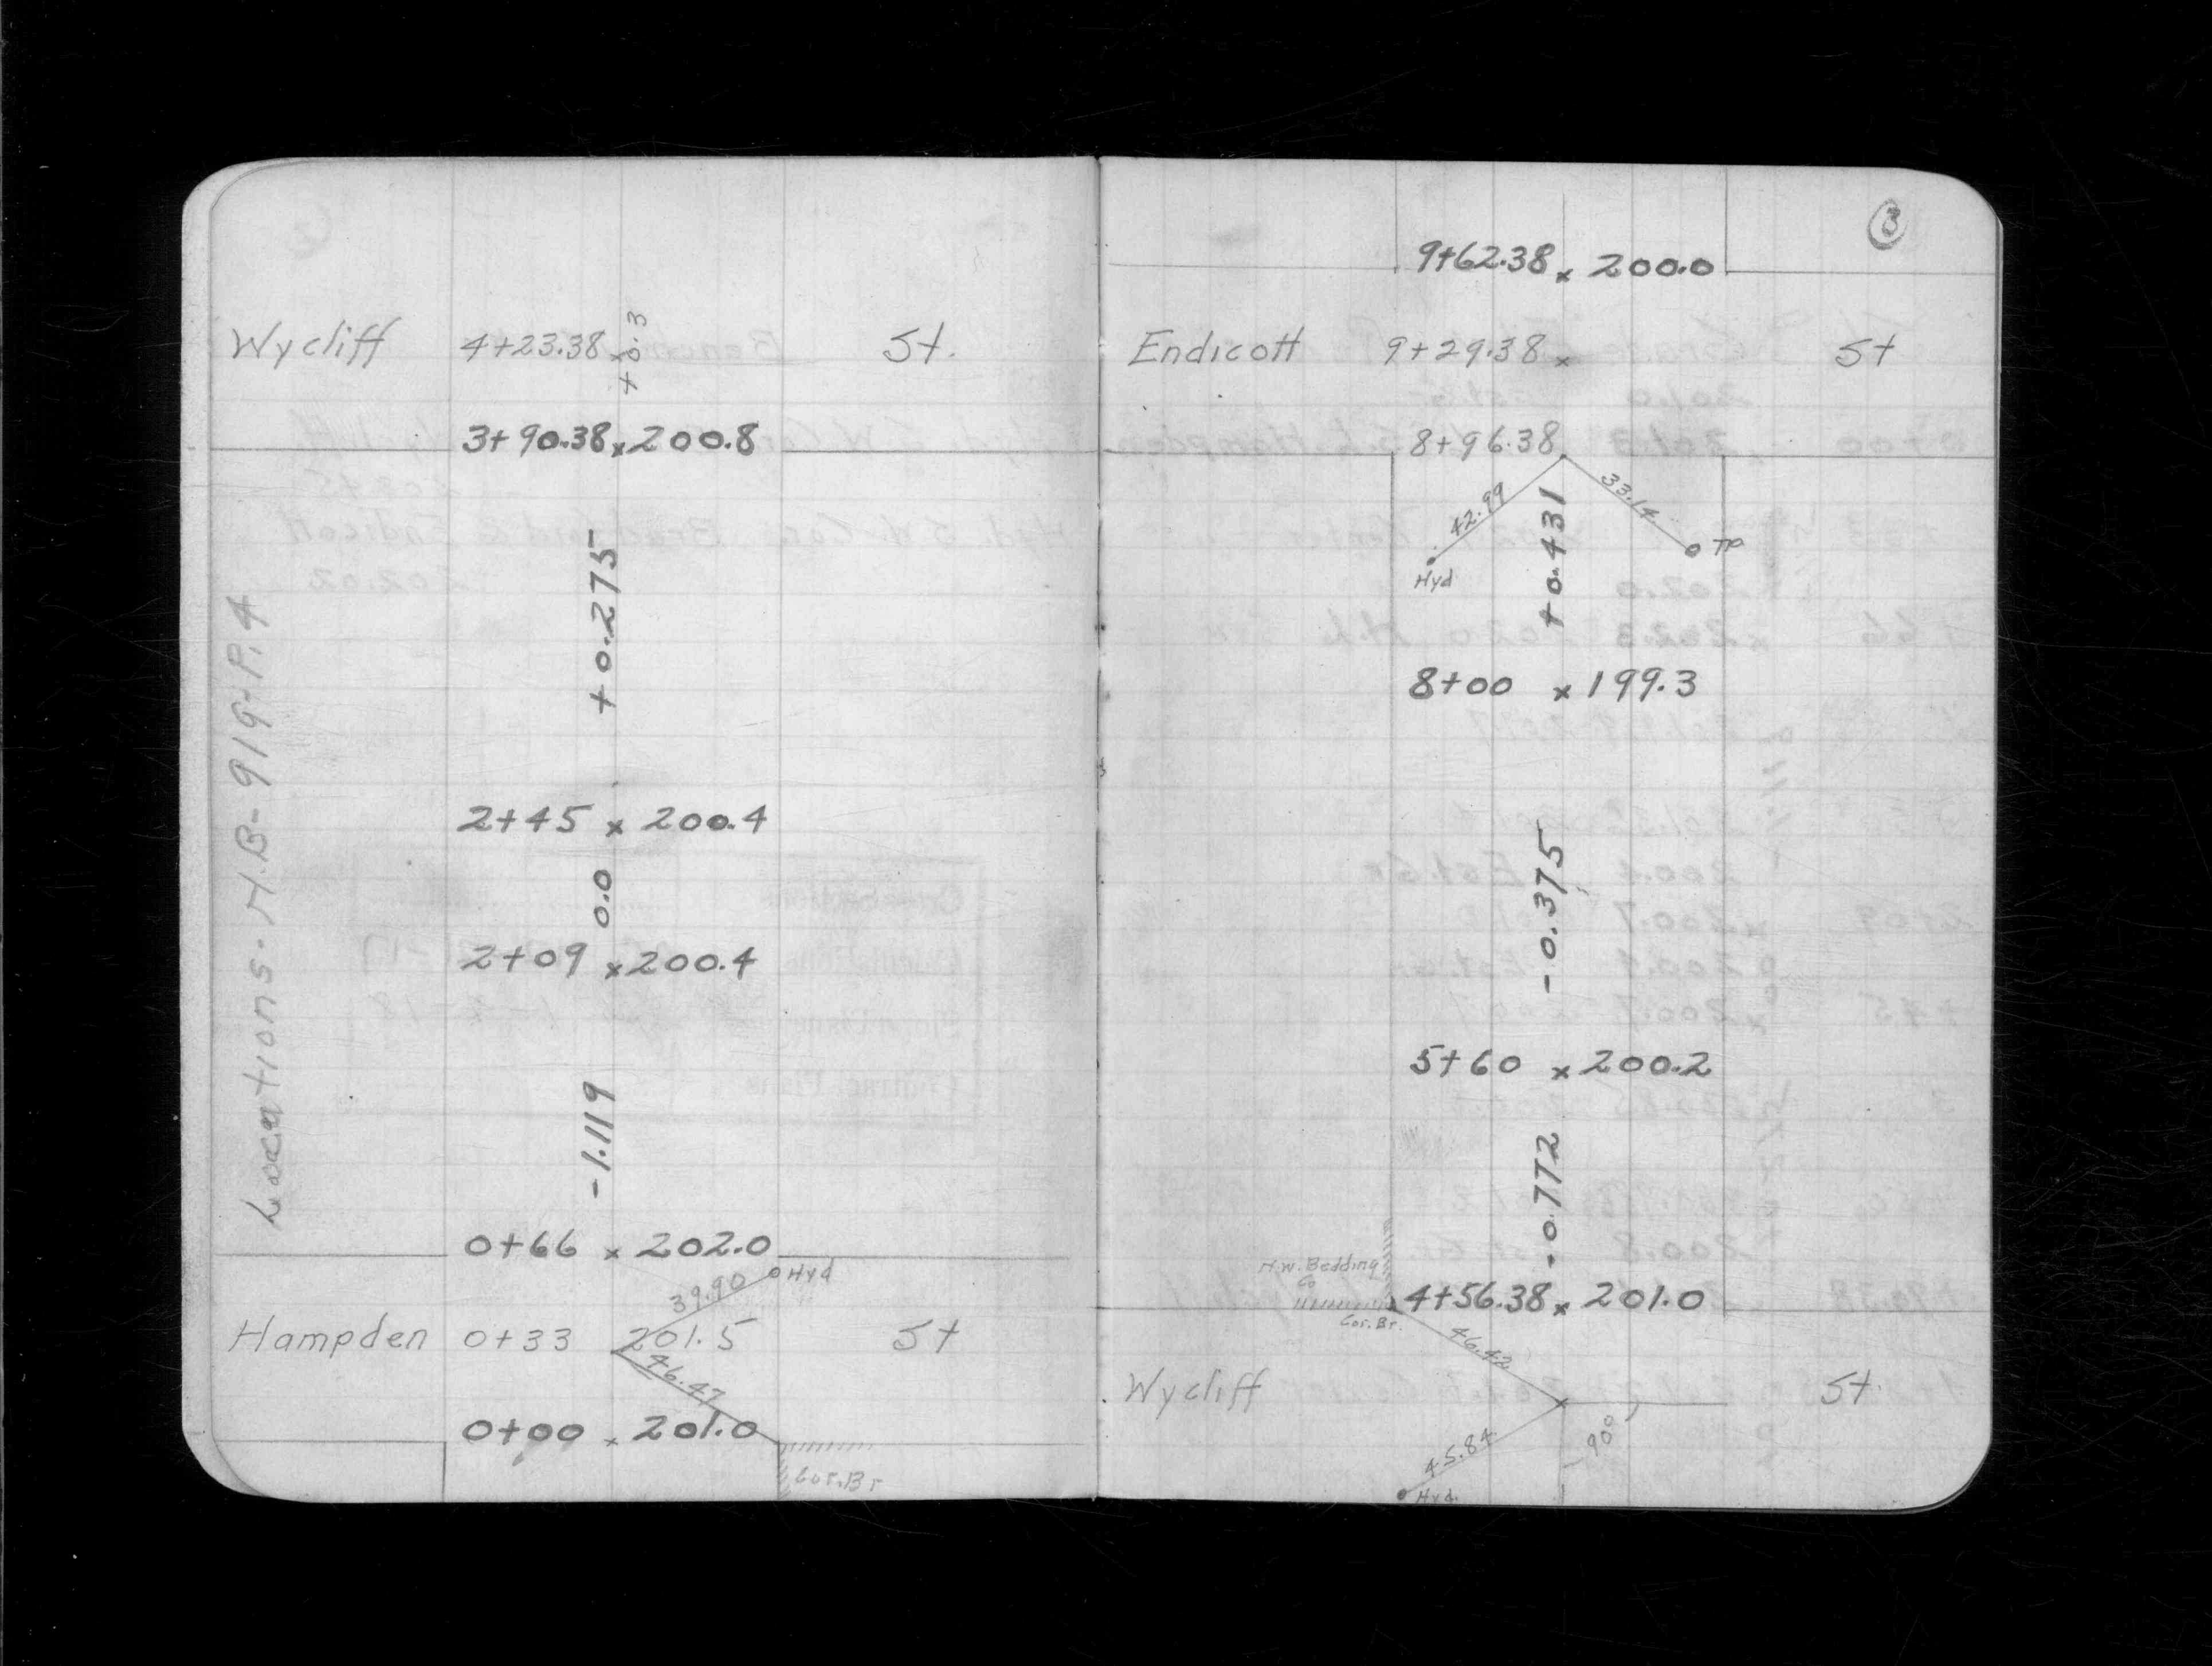 Wycliff 4+23.38 x St.
+0.3
3+90.38 x 200.8
+0.275
2+45 x 200.4
0.0
2+09 x 200.4
-1.119
0+66 x 202.0
39.90 Hyd
Hampden 0+33 201.5 St
46.47
0+00 x 201.0
Cor. Br
Locations. N.B-919-P.4
3
9+62.38 x 200.0
Endicott 9+29.38 x St
8+96.38
42.99 33.14
Hyd TP
+0.431
8+00 x 199.3
-0.375
5+60 x 200.2
-0.772
N.W. Bedding
Co
4+56.38 x 201.0
Cor. Br.
46.42
Wycliff St.
90°
45.84
Hyd.